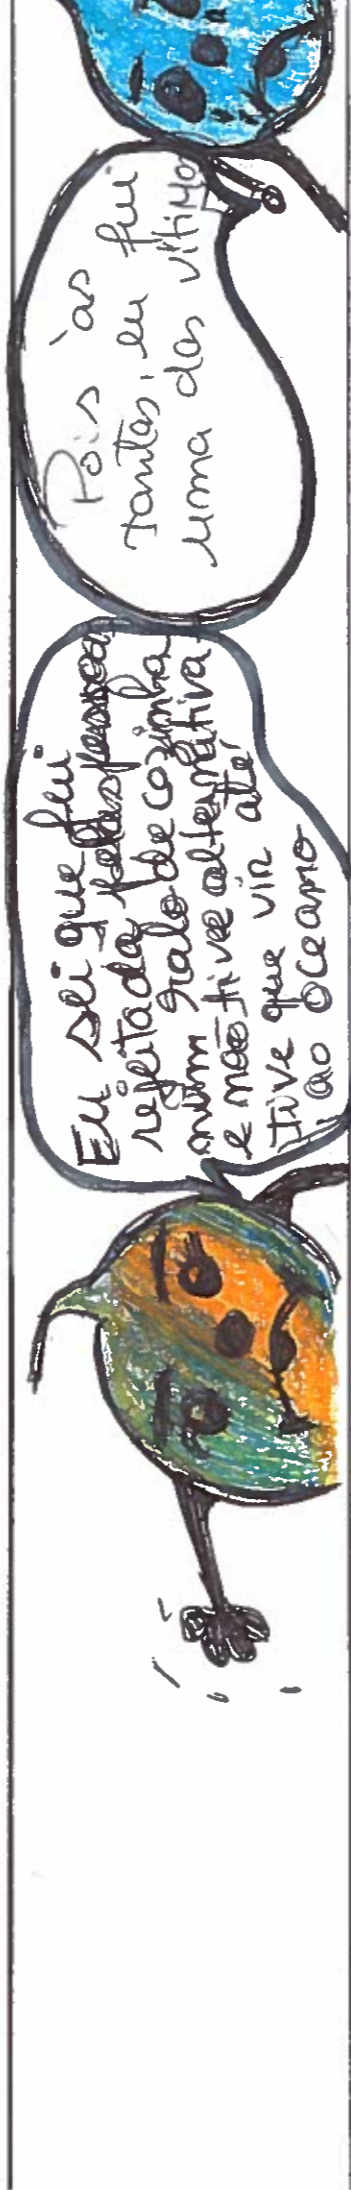 Eu sei que fui
rejeitada pelas pessoa
num ralo de cozimha
e não tive alternativa
Tive que vin até
ao oceano
Pois às
tantas, eu fui
uma das vítima